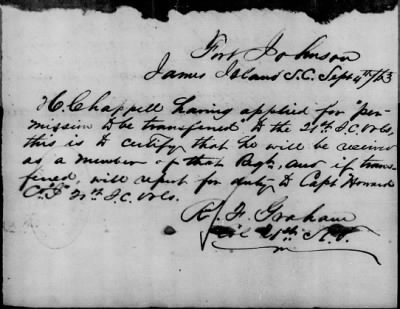 Fort Johnson
James Island S.C. Sept 4th/63
H. C. Chappell having applied for "per-
mission to be transfered to the 21st S.C. Vols.
this is to certify, that he will be received
as a member of that Regt., and if trans-
fered, will report for duty to Capt Howard
Co. 21st S.C. Vols.
R. F. Graham
Col 21st S.V.